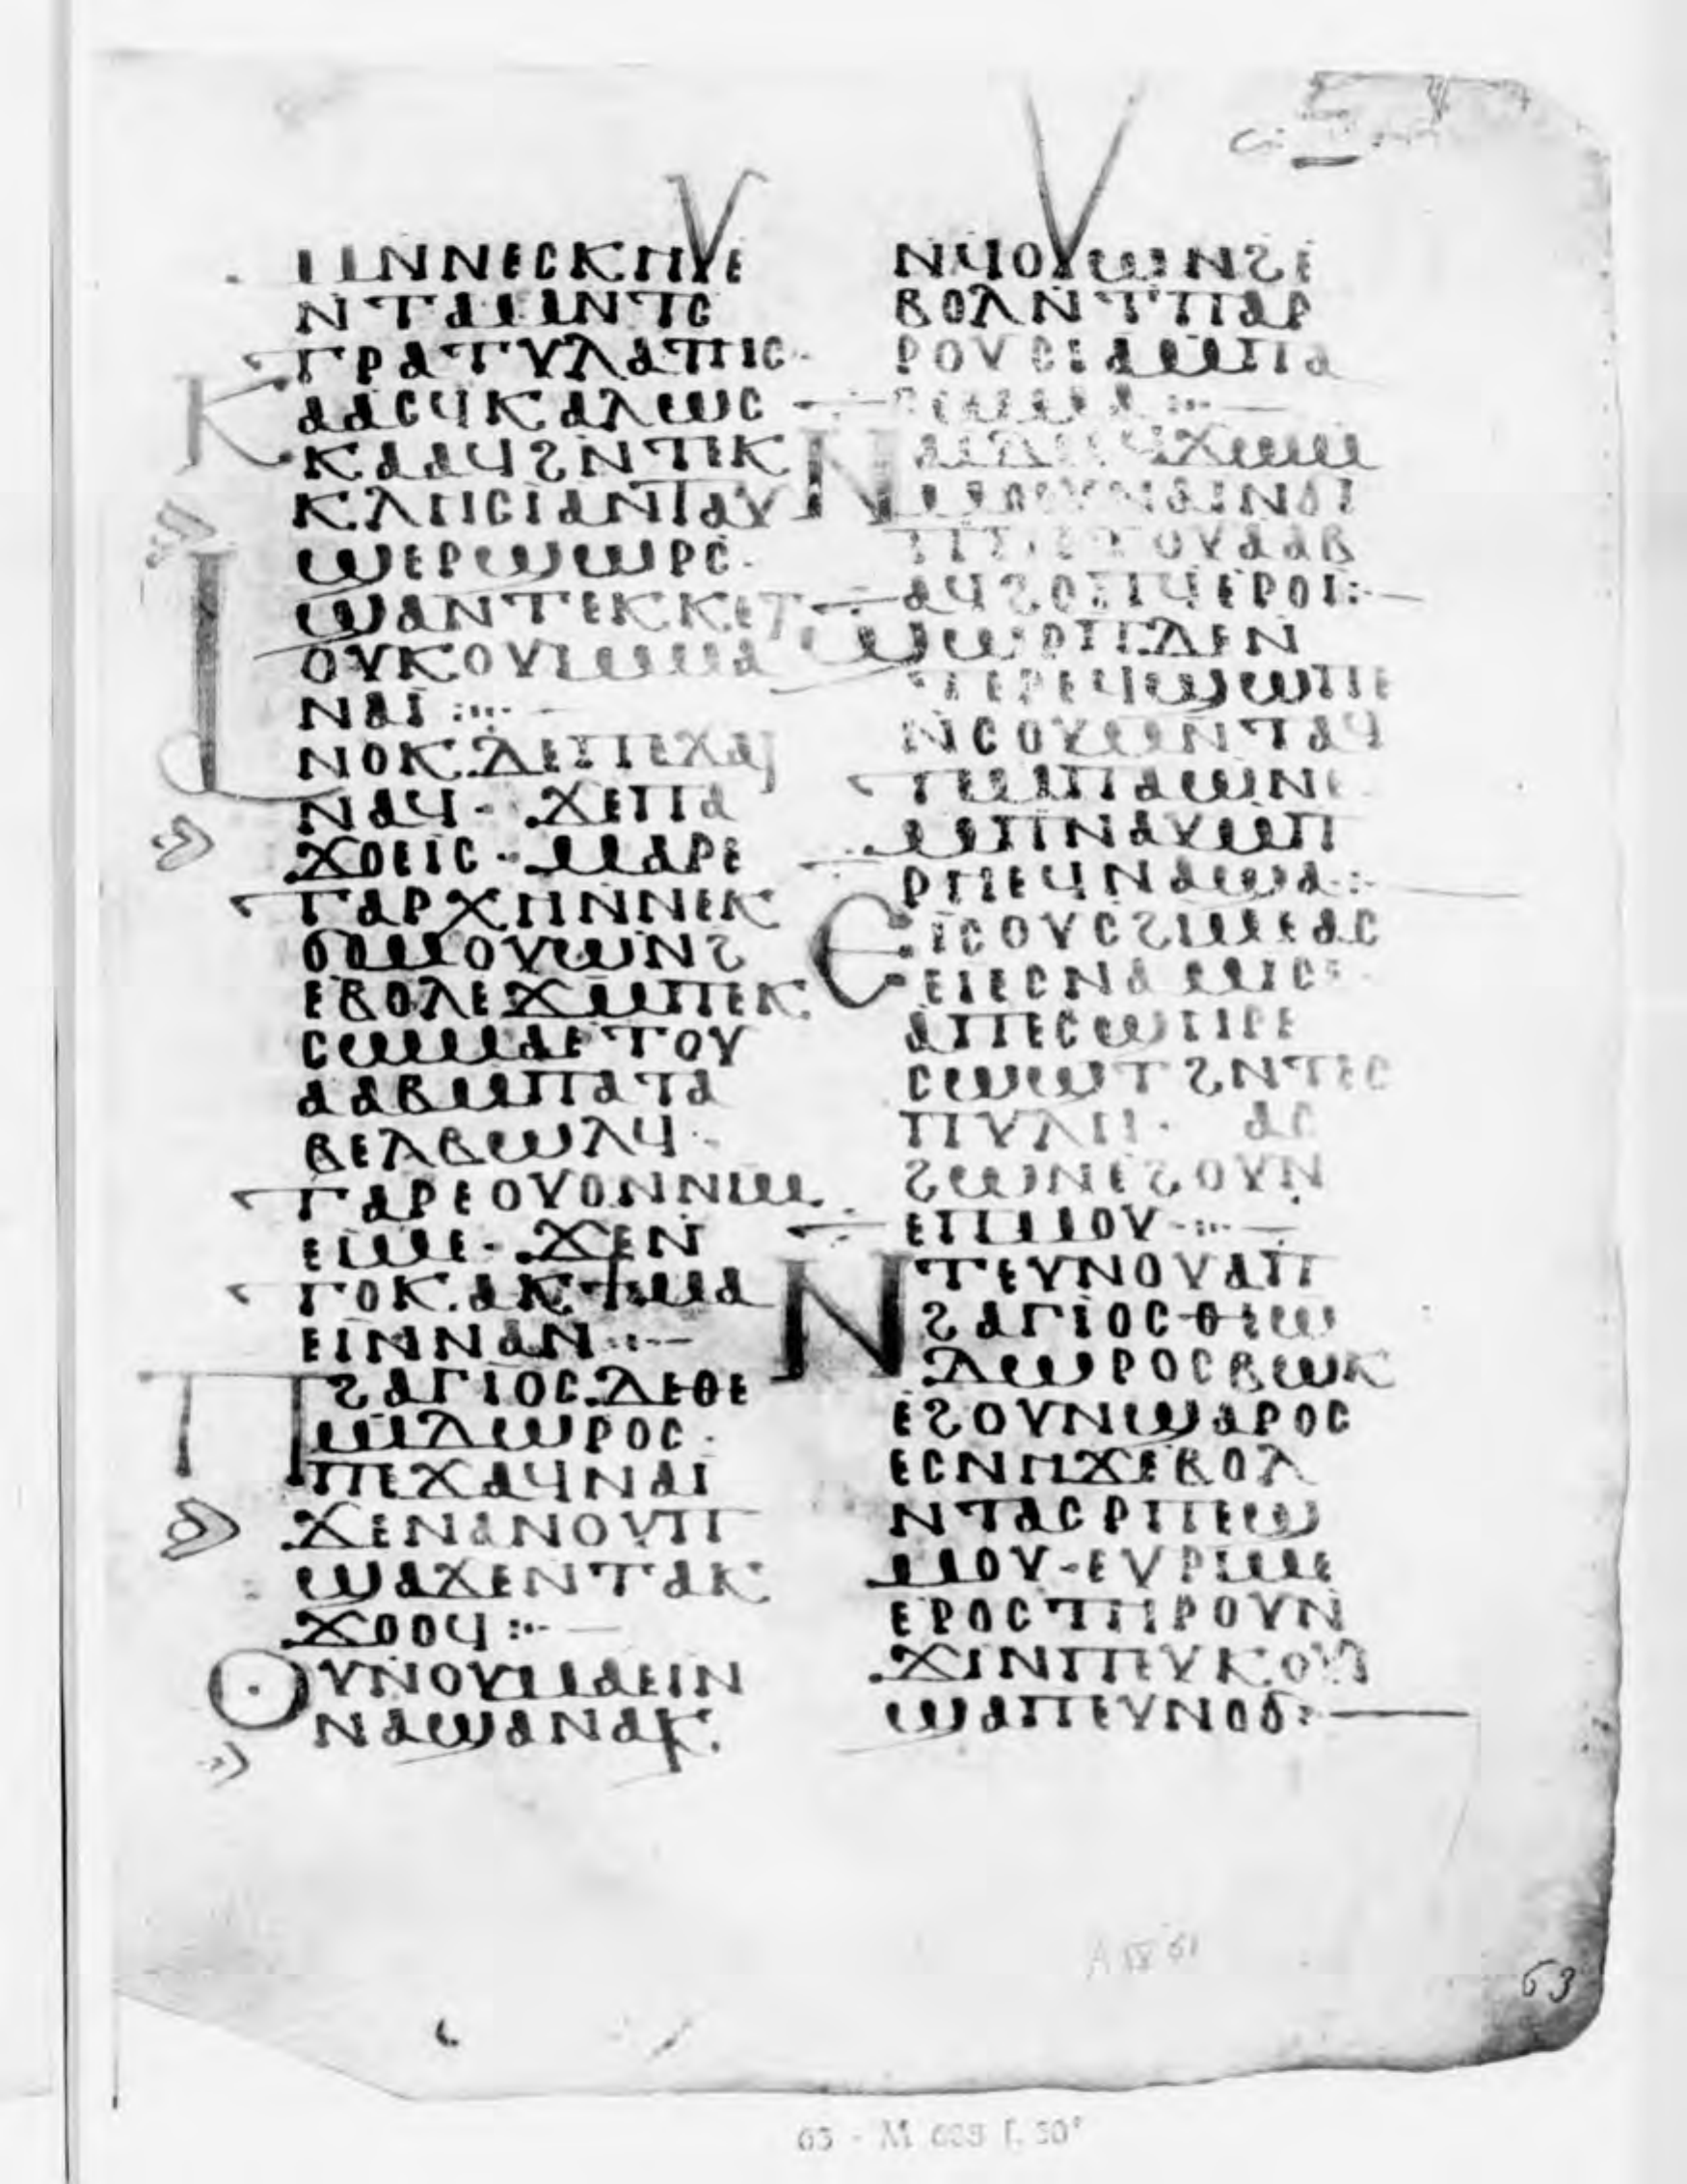 ⲙⲛⲛⲉⲥⲕⲏⲩⲉ
ⲛⲧⲁⲙⲛⲧⲥ
ⲧⲣⲁⲧⲩⲗⲁⲧⲏⲥ·
ⲕⲁⲁⲥϥⲕⲁⲗⲱⲥ
ⲕⲁⲁϥϩⲛⲧⲉⲕ
ⲕⲗⲏⲥⲓⲁⲛⲧⲁⲩ
ϣⲉⲣϣⲱⲣⲥ·
ϣⲁⲛⲧⲉⲕⲕⲉⲧ
ⲟⲩⲕⲟⲩⲓⲙⲙⲁ
ⲛⲁⲓ :··—
ⲁⲛⲟⲕ·ⲇⲉⲡⲉϫⲁⲓ
ⲛⲁϥ· ϫⲉⲡⲁ
ϫⲟⲉⲓⲥ· ⲙⲁⲣⲉ
ⲧⲁⲣⲭⲏⲛⲛⲉⲕ
ϭⲟⲙⲟⲩⲱⲛϩ
ⲉⲃⲟⲗⲉϫⲙⲡⲉⲕ
ⲥⲱⲙⲁⲉⲧⲟⲩ
ⲁⲁⲃⲙⲡⲁⲧⲁ
ⲃⲉⲗⲃⲱⲗϥ·
ⲧⲁⲣⲉⲟⲩⲟⲛⲛⲓⲙ
ⲉⲓⲙⲉ· ϫⲉⲛ
ⲧⲟⲕ·ⲁⲕϯⲙⲁ
ⲉⲓⲛⲛⲁⲛ :·—
ⲡϩⲁⲅⲓⲟⲥ·ⲇⲉⲑⲉ
ⲱⲇⲱⲣⲟⲥ·
ⲡⲉϫⲁϥⲛⲁⲓ
ϫⲉⲛⲁⲛⲟⲩⲡ
ϣⲁϫⲉⲛⲧⲁⲕ
ϫⲟⲟϥ :·—
ⲟⲩⲛⲟⲩⲙⲁⲉⲓⲛ
ⲛⲁϣⲁⲛⲁⲕ·
ⲛϥⲟⲩⲱⲛϩⲉ
ⲃⲟⲗⲛⲧⲡⲁⲣ
ⲣⲟⲩⲥⲓⲁⲙⲡⲁ
ⲥⲱⲙⲁ :·—
ⲡⲉⲧⲟⲩⲁⲁⲃ
ⲁϥϩⲟⲡϥⲉⲣⲟⲓ:—
ϣⲱⲣⲡ·ⲇⲉⲛ
ⲧⲉⲣⲉϥϣⲱⲡⲉ
ⲛⲥⲟⲩⲙⲛⲧⲁϥ
ⲧⲉⲙⲡⲁⲱⲛⲉ
ⲙⲡⲛⲁⲩⲙⲡ
ⲣⲏⲉϥⲛⲁϣⲁ:—
ⲉⲓⲥⲟⲩⲥϩⲓⲙⲉⲁⲥ
ⲉⲓⲉⲥⲛⲁⲙⲓⲥⲉ·
ⲁⲡⲉⲥϣⲏⲣⲉ
ⲥⲱⲱⲧϩⲛⲧⲉⲥ
ⲡⲩⲗⲏ· ⲁⲥ
ϩⲱⲛⲉϩⲟⲩⲛ
ⲉⲡⲙⲟⲩ·:·—
ⲛⲧⲉⲩⲛⲟⲩⲁⲡ
ϩⲁⲅⲓⲟⲥⲑⲉⲱ
ⲇⲱⲣⲟⲥⲃⲱⲕ
ⲉϩⲟⲩⲛϣⲁⲣⲟⲥ
ⲉⲥⲛⲏϫⲉⲃⲟⲗ
ⲛⲧⲁⲥⲣⲡⲉϣ
ⲙⲟⲩ·ⲉⲩⲣⲓⲙⲉ
ⲉⲣⲟⲥⲧⲏⲣⲟⲩⲛ
ϫⲓⲛⲡⲉⲩⲕⲟⲩⲓ
ϣⲁⲡⲉⲩⲛⲟϭ:—
A IX 61
63
63 - M 608 f. 30ʳ